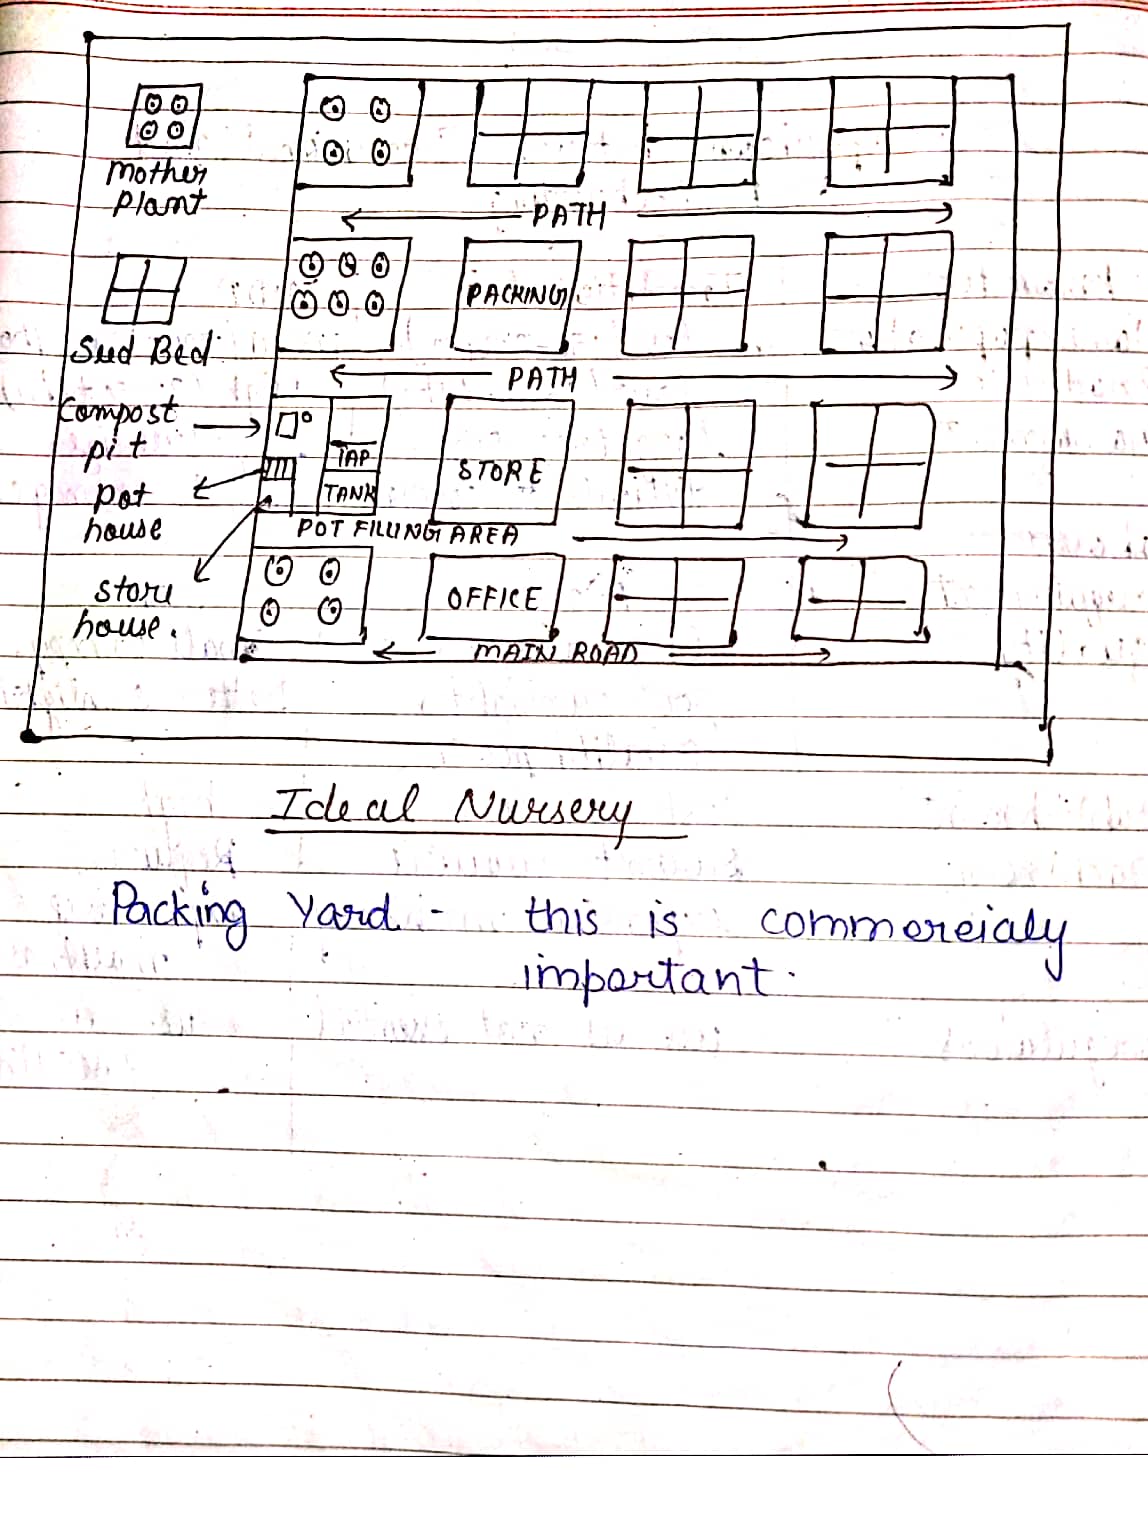 Mother
Plant
PATH
Seed Bed
PACKING
PATH
Compost
pit
TAP
STORE
pot
house
TANK
POT FILLING AREA
store
house.
OFFICE
MAIN ROAD
Ideal Nursery
Packing Yard :- this is commercialy
important.